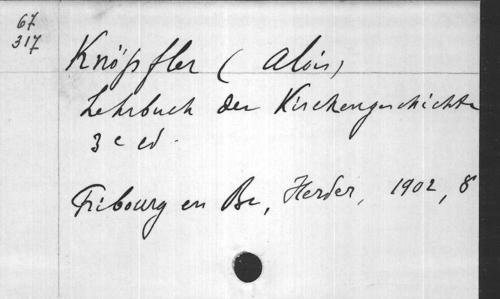 67
317
Knöpfler (Alois)
Lehrbuch der Kirchengeschichte
3e ed.
Fribourg en Br, Herder, 1902, 8